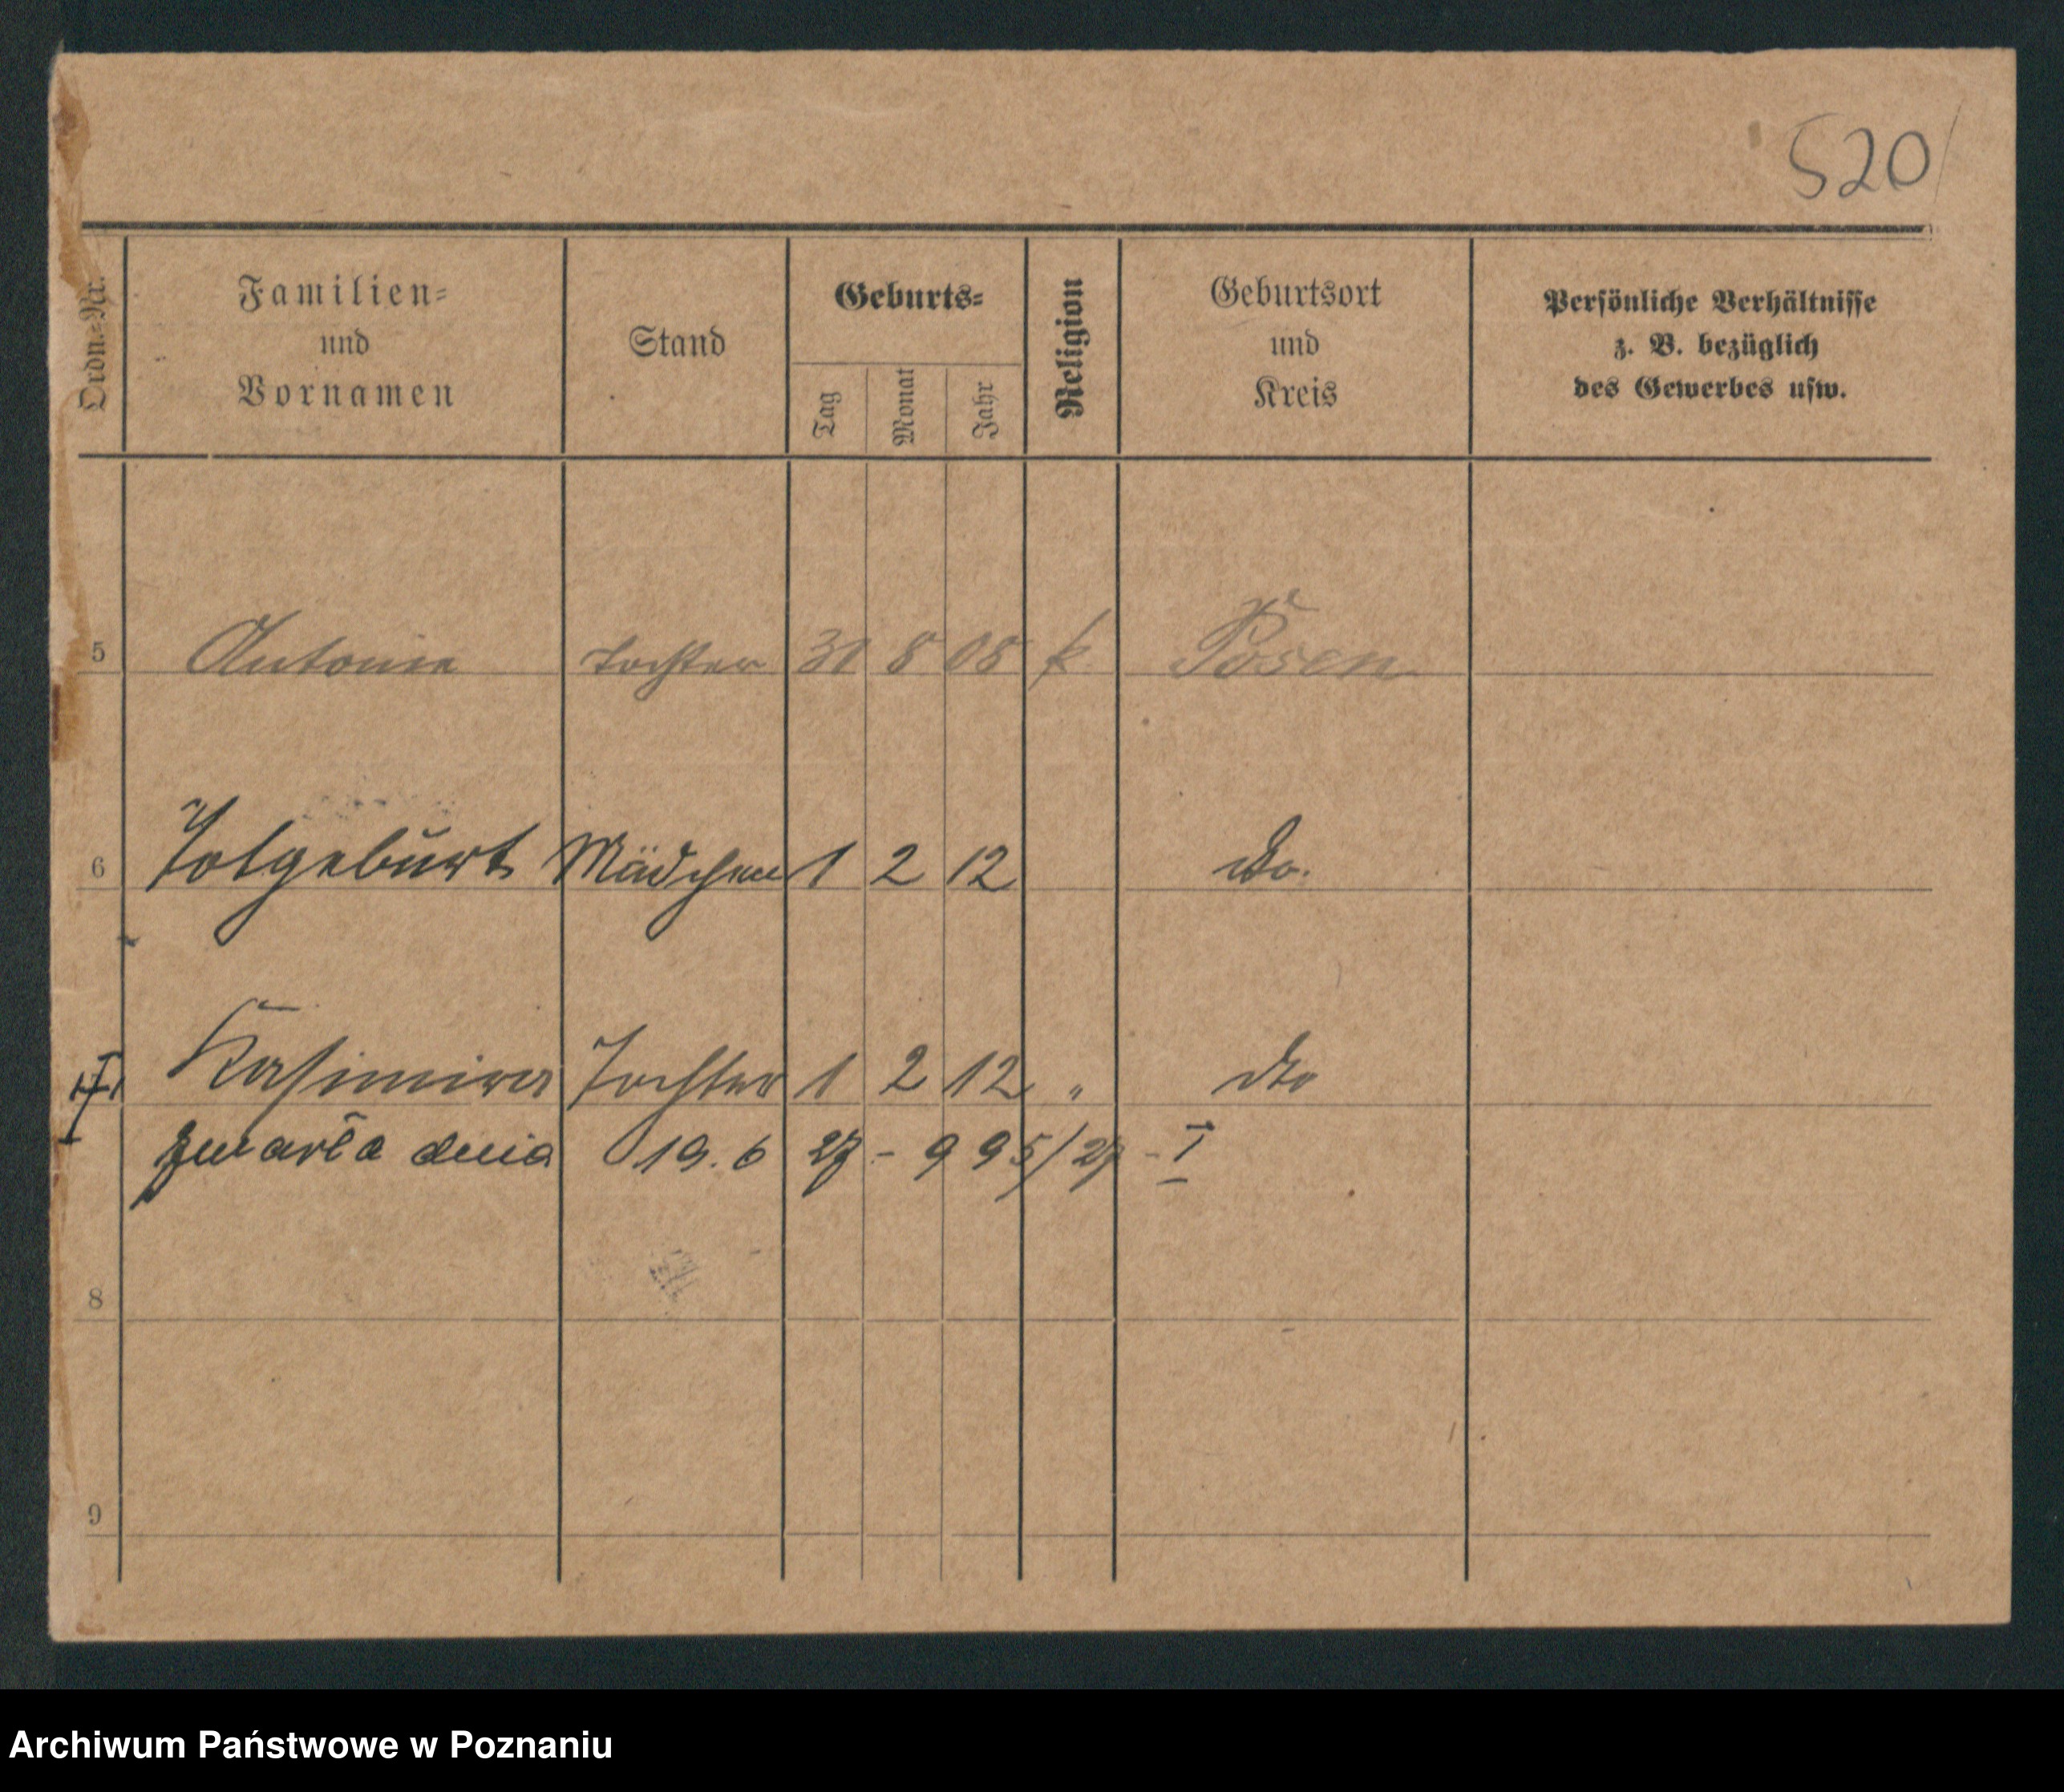 520
Ordn.-Nr. Familien- und Vornamen Stand Geburts- Tag Monat Jahr Religion Geburtsort und Kreis Persönliche Verhältnisse z. B. bezüglich des Gewerbes usw.
5 Antonie Tochter 31 8 08 k Posen
6 Totgeburt Mädchen 1 2 12 do.
Kasimira Tochter 1 2 12 " dto
zmarła dnia 19. 6 27 - 995/27 - I
8
9
Archiwum Państwowe w Poznaniu